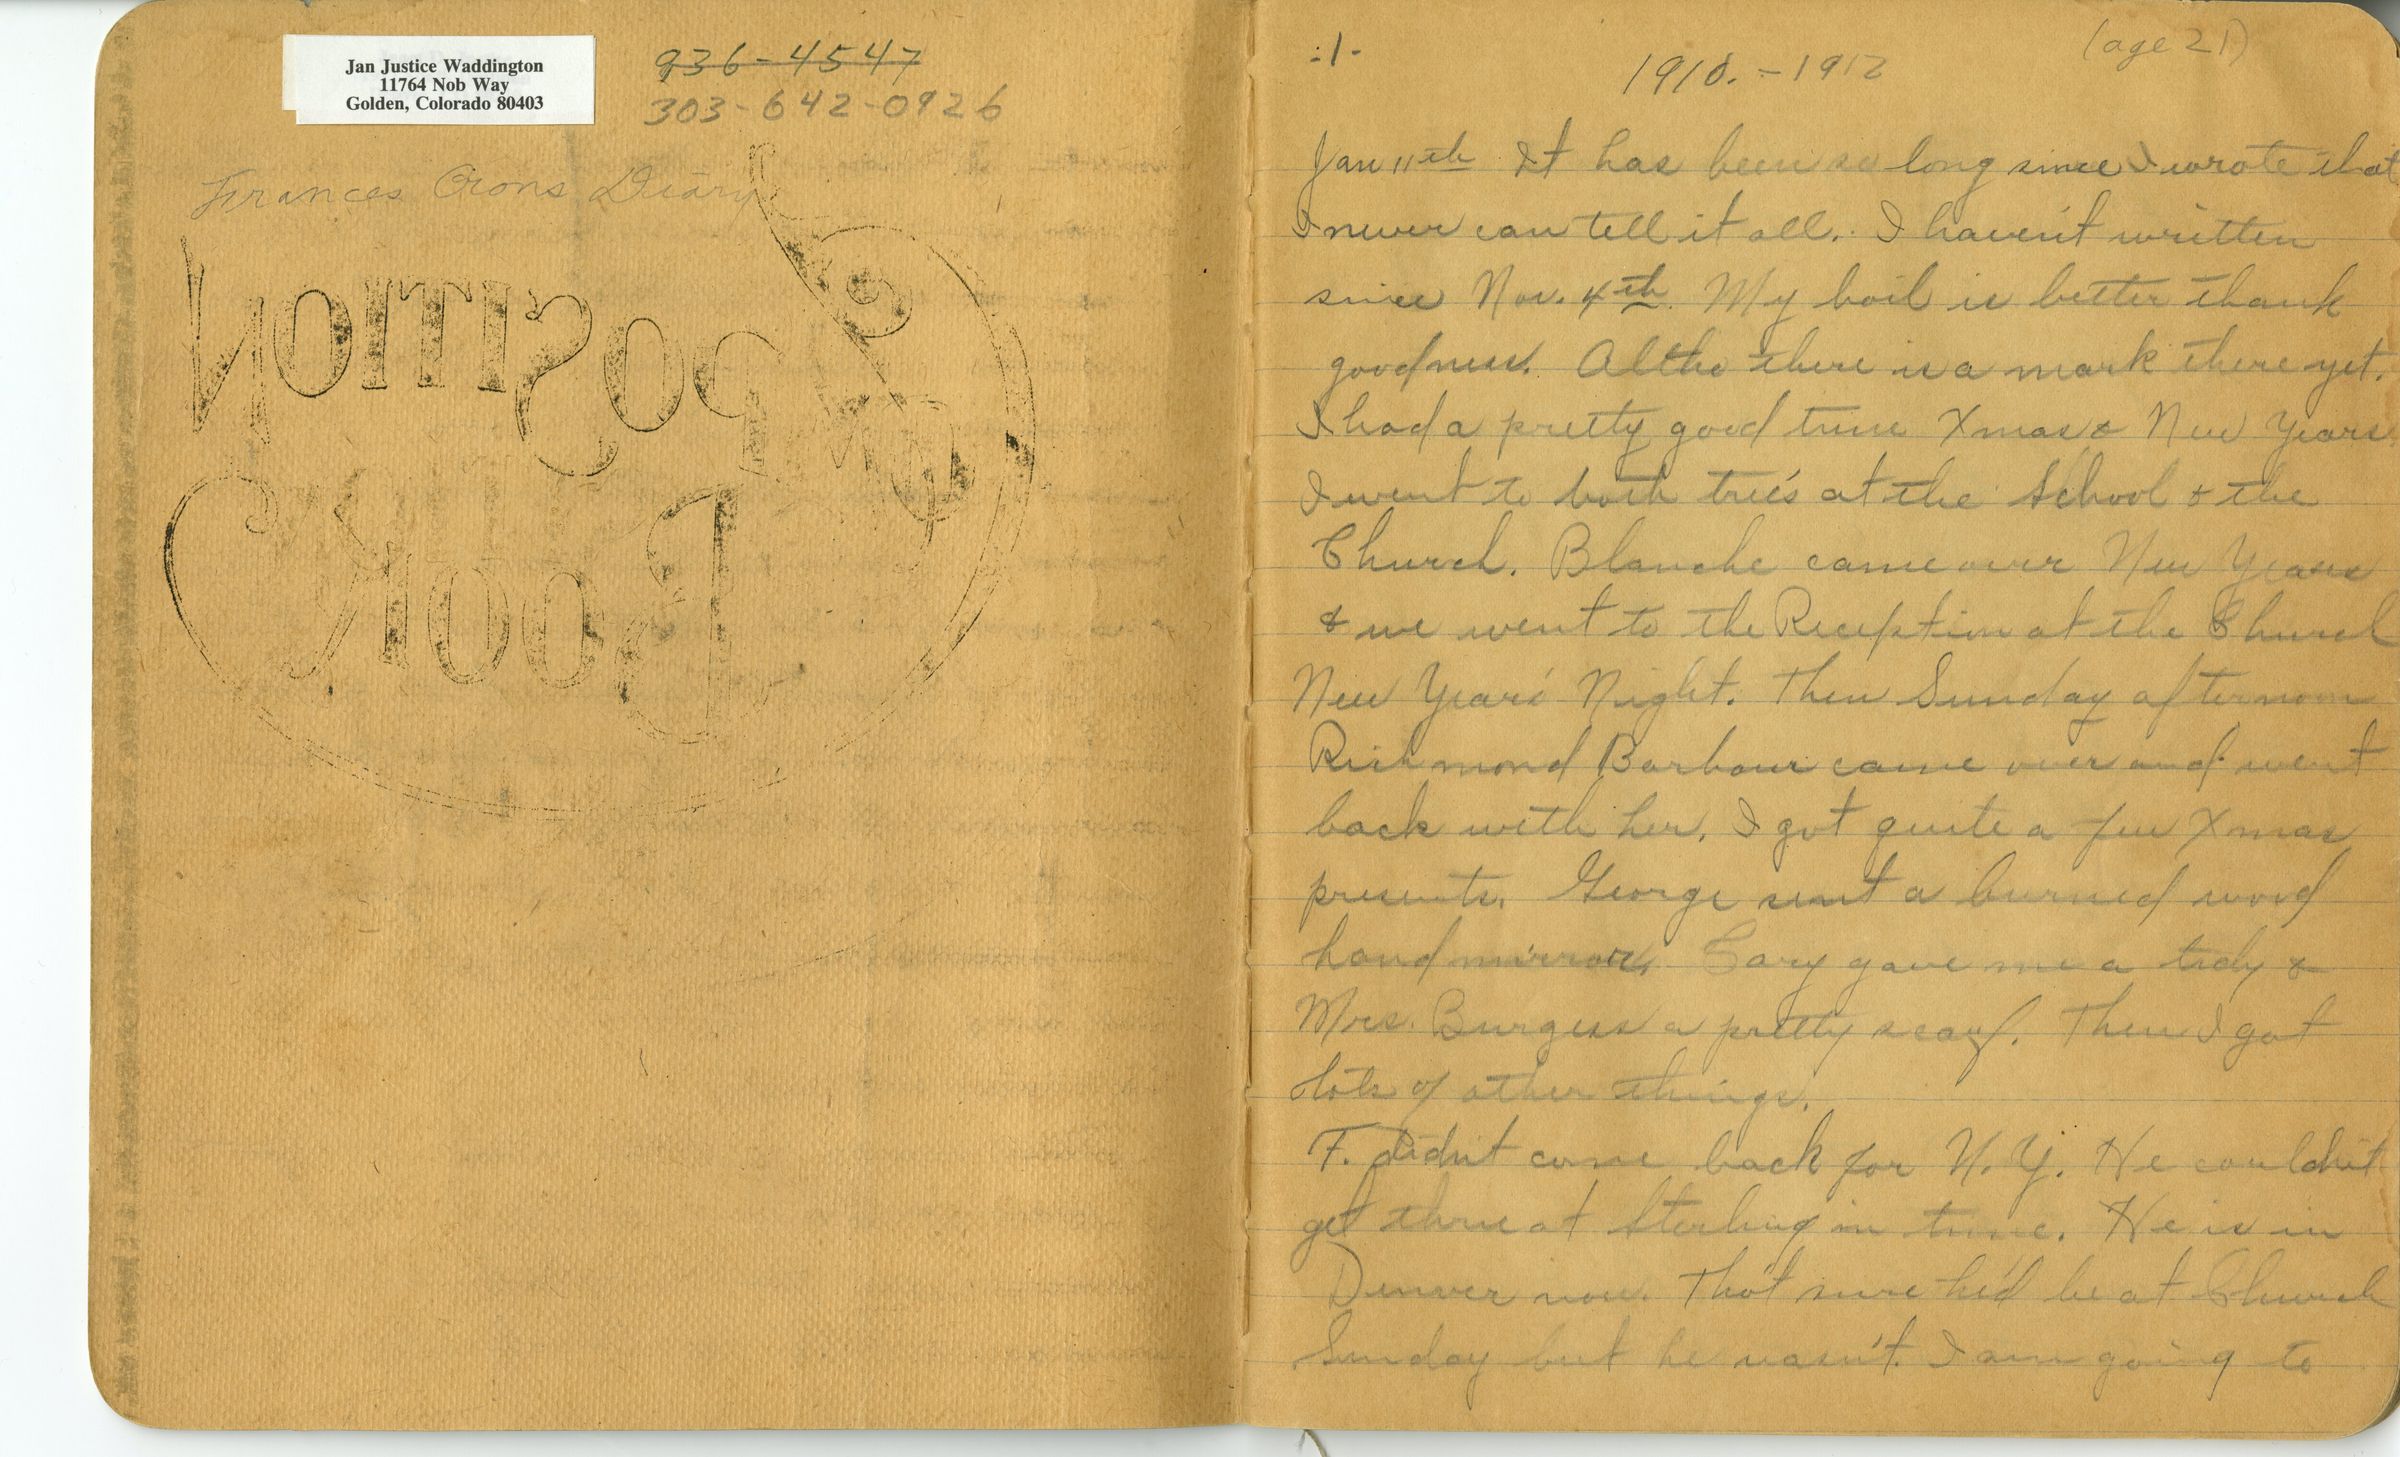 Jan Justice Waddington
11764 Nob Way
Golden, Colorado 80403
936-4547
303-642-0926
Frances Crons Diary
Composition
Book
-1-
1910. - 1912
(age 21)
Jan 11th It has been so long since I wrote that
I never can tell it all. I haven't written
since Nov. 4th. My boil is better thank
goodness. Altho there is a mark there yet.
I had a pretty good time Xmas & New Years
I went to both tree's at the School & the
Church. Blanche came over New Years
& we went to the Reception at the Church
New Year's Night. Then Sunday afternoon
Richmond Barbour came over and went
back with her. I got quite a few Xmas
presents. George sent a burned wood
hand mirror. Cary gave me a tidy &
Mrs. Burgess a pretty scarf. Then I got
lots of other things.
F. Didn't come back for N.Y. He couldn't
get thru at Sterling in time. He is in
Denver now. Tho't sure he'd be at Church
Sunday but he wasn't. I am going to